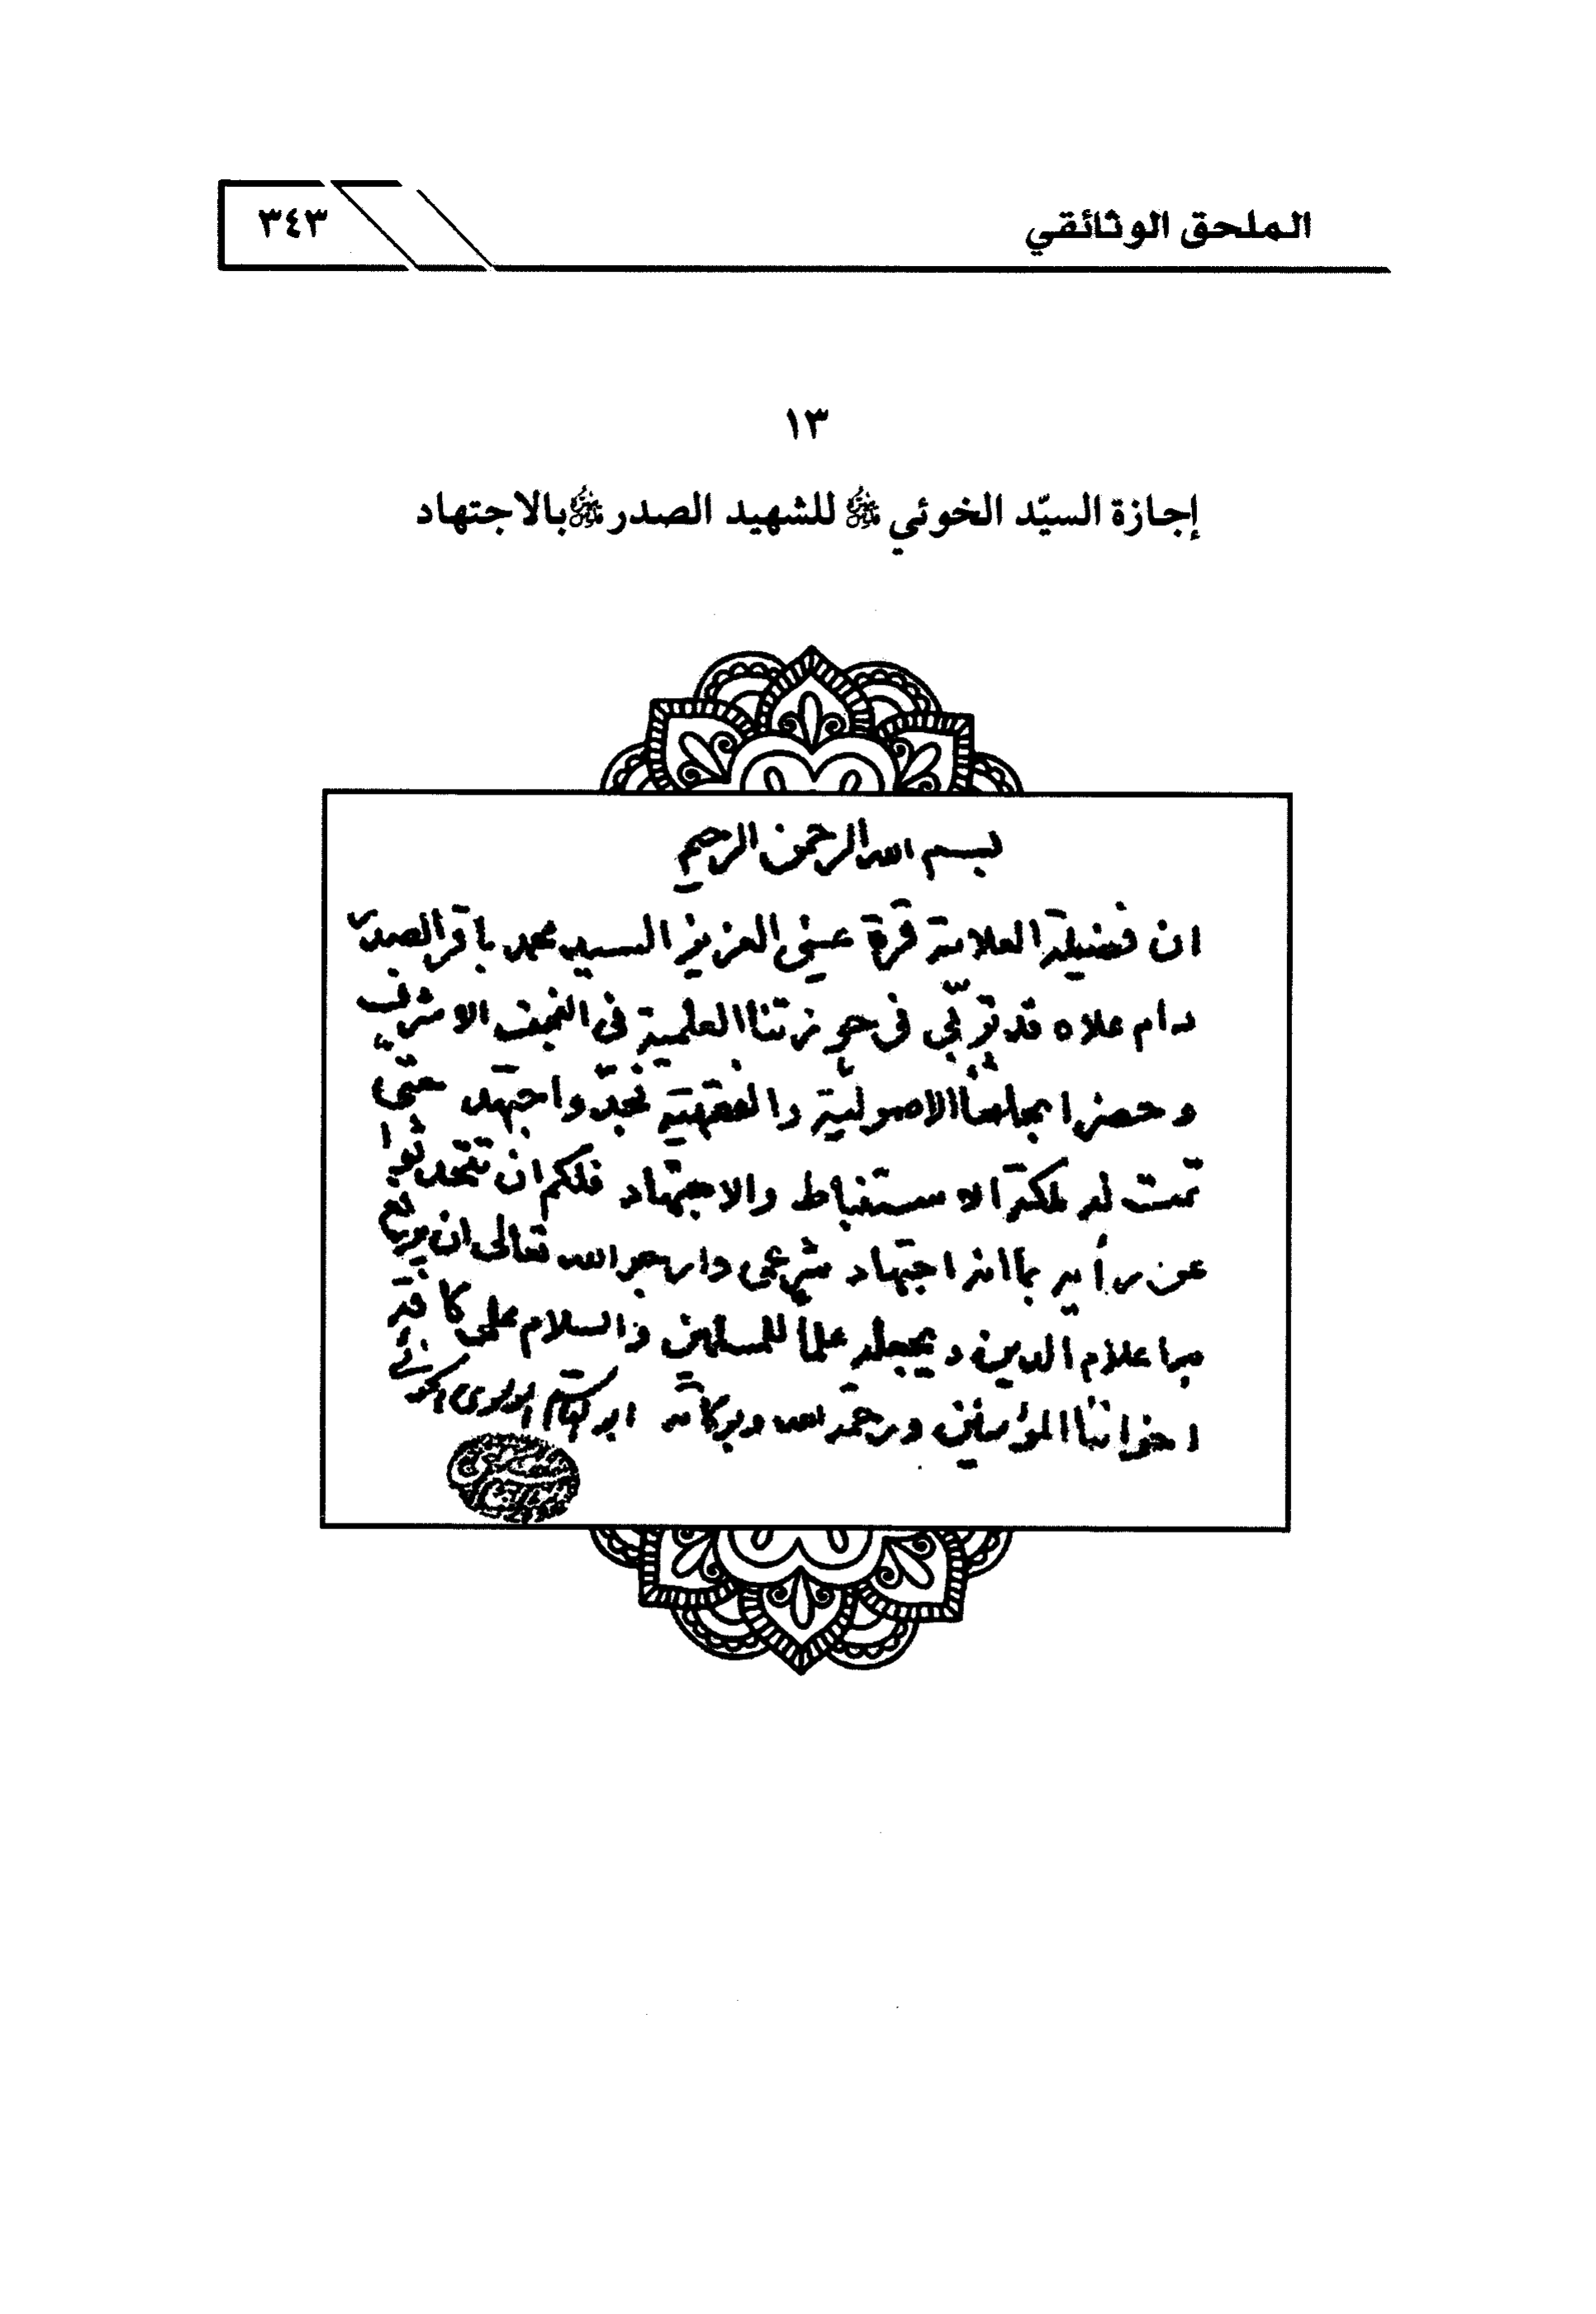 الملحق الوثائقي
٣٤٣
١٣
إجازة السيّد الخوئي قدس سره للشهيد الصدر قدس سره بالاجتهاد
بسم الله الرحمن الرحيم
ان فضيلة العلامة قرة عيني العزيز السيد محمد باقر الصدر
دام علاه قد تربّى في حوزتنا العلمية في النجف الاشرف
وحضر ابحاثنا الاصولية والفقهية فجدّ واجتهد حتى
تمت له ملكة الاستنباط والاجتهاد فلكم ان تتحدثوا
عن رأيه بما انه اجتهاد شرعي وارجو الله تعالى ان يرفع
به اعلام الدين ويجعله علما للمسلمين والسلام على كافة
اخواننا المؤمنين ورحمة الله وبركاته ابو القاسم الموسوي الخوئي